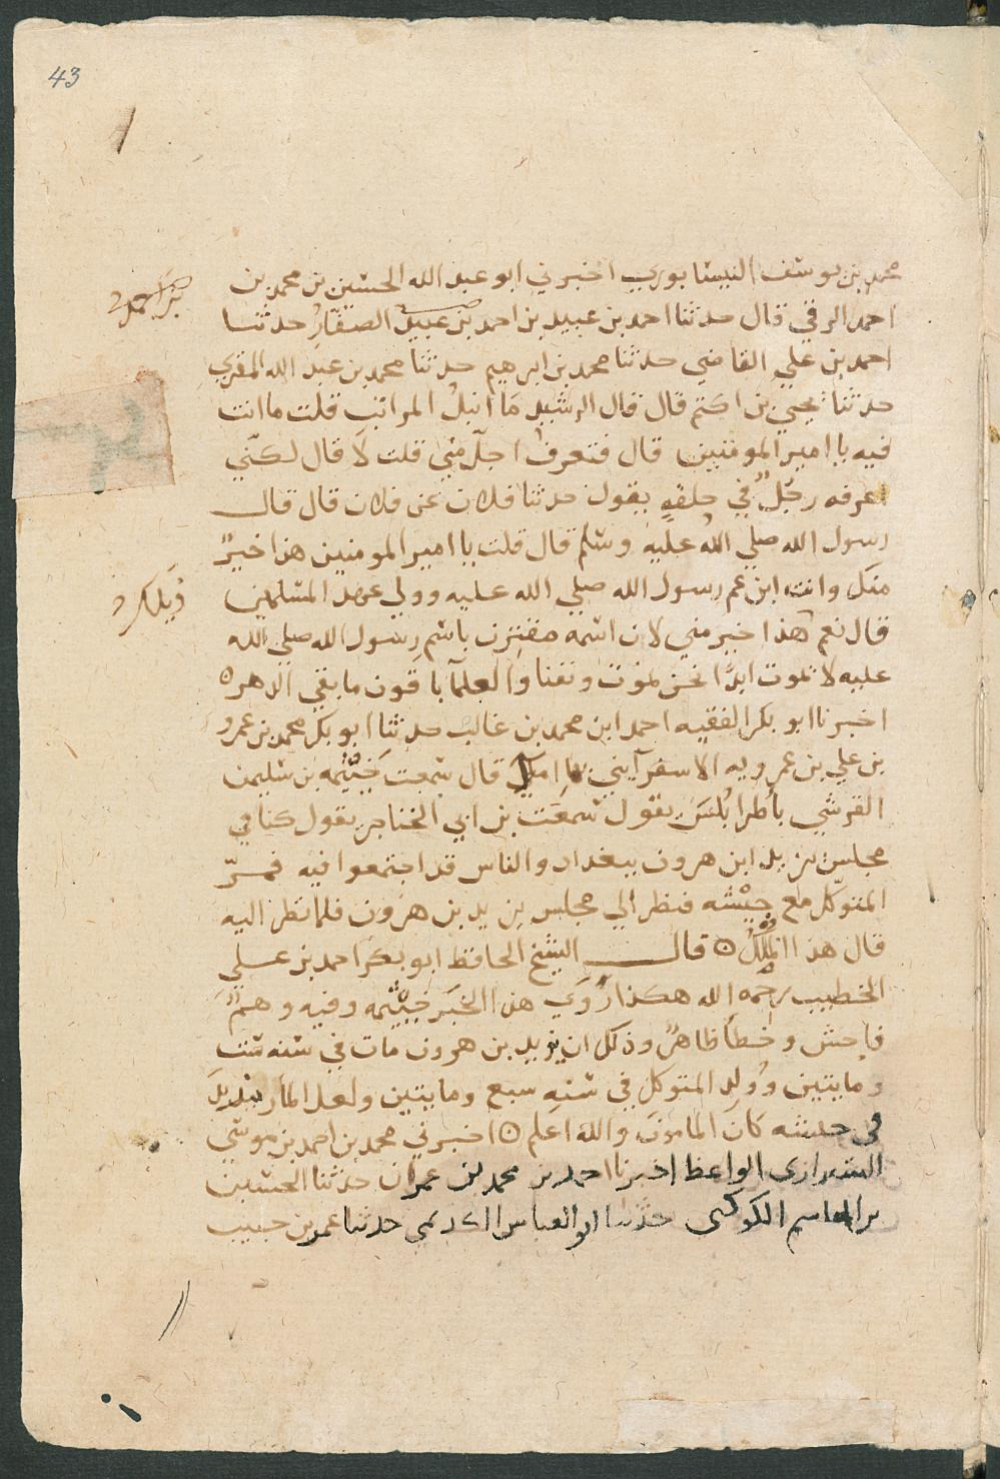 43
محمد بن يوسف النيسابوري اخبرني ابو عبد الله الحسين بن محمد بن
احمد الرقي قال حدثنا احمد بن عبيد بن احمد بن عبيد الصفار حدثنا
بن احمد
احمد بن علي القاضي حدثنا محمد بن ابرهيم حدثنا محمد بن عبد الله المقري
حدثنا يحيى بن اكثم قال قال الرشيد ما انبل المراتب قلت ما انت
فيه يا امير المومنين قال فتعرف اجل مني قلت لا قال لكني
اعرفه رجل في حلقة يقول حدثنا فلان عن فلان قال قال
رسول الله صلي الله عليه وسلم قال قلت يا امير المومنين هذا خير
منك وانت ابن عم رسول الله صلي الله عليه وولي عهد المسلمين
ويلك
قال نعم هذا خير مني لان اسمه مقترن باسم رسول الله صلي الله
عليه لا يموت ابدا نحن نموت ونفنا والعلمآ باقون ما بقي الدهر ه
اخبرنا ابو بكر الفقيه احمد ابن محمد بن غالب حدثنا ابو بكر محمد بن عمرو
بن علي بن عمرويه الاسفرآيني بها املا قال سمعت خيثمه بن سليمن
القرشي باطرابلس يقول سمعت بن ابي الخناجر يقول كنا في
مجلس يزيد ابن هرون ببغداد والناس قد اجتمعوا فيه فمرّ
المتوكل مع جيشه فنظر الي مجلس يزيد بن هرون فلما نظر اليه
قال هذا الملك ه قال الشيخ الحافظ ابو بكر احمد بن علي
الخطيب رحمه الله هكذا روي هذا الخبر خيثمه وفيه وهم
فاحش وخطأ ظاهر وذلك ان يزيد بن هرون مات في سنه ست
ومايتين وولد المتوكل في سنه سبع ومايتين ولعل المار بيزيد
في جيشه كان المامون والله اعلم ه اخبرني محمد بن احمد بن موسي
الشيرازي الواعظ اخبرنا احمد بن محمد بن عمران حدثنا الحسين
بن القاسم الكوكبي حدثنا ابو العباس الكديمي حدثنا عمر بن حبيب